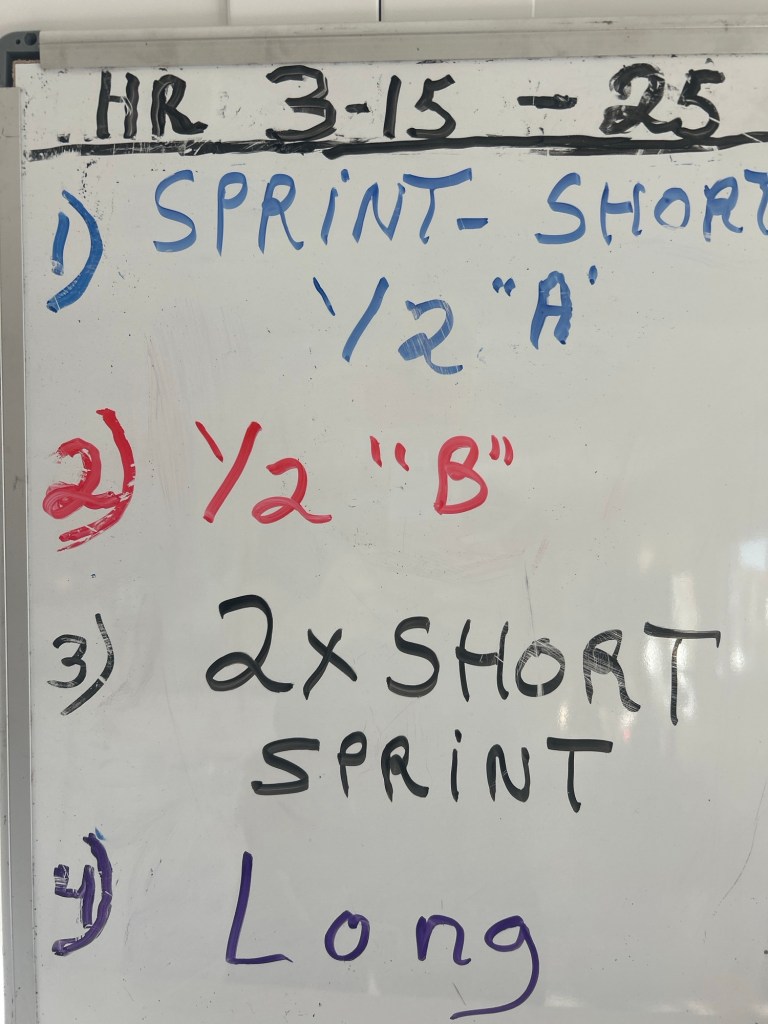 HR 3-15 - 25
1) SPRiNT- SHORT
1/2 "A'
2) 1/2 "B"
3) 2x SHORT
SPRiNT
4) Long